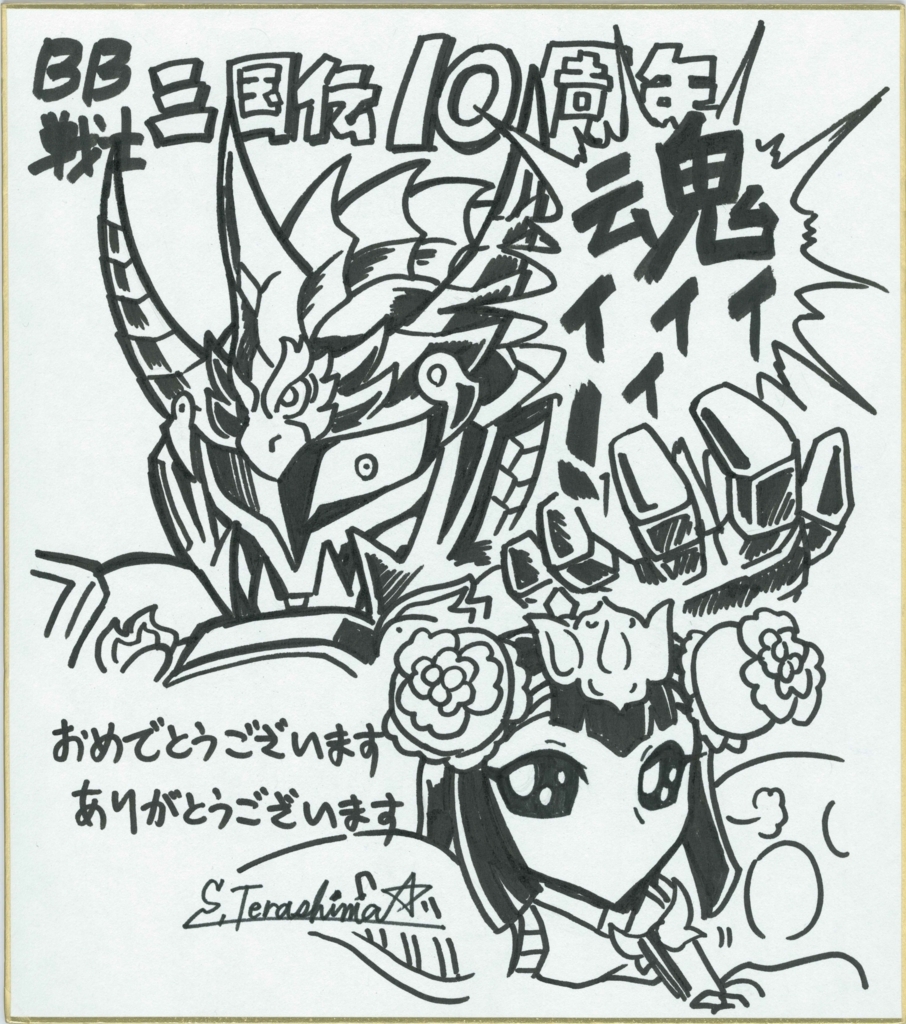 BB戦士 三国伝10周年
魂イイィイ!
おめでとうございます
ありがとうございます
S.Terashima☆